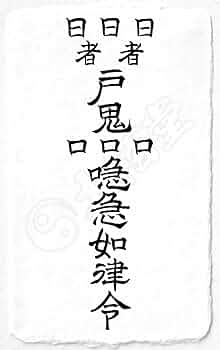 日日日
者者
尸鬼
口口口
喼急如律令